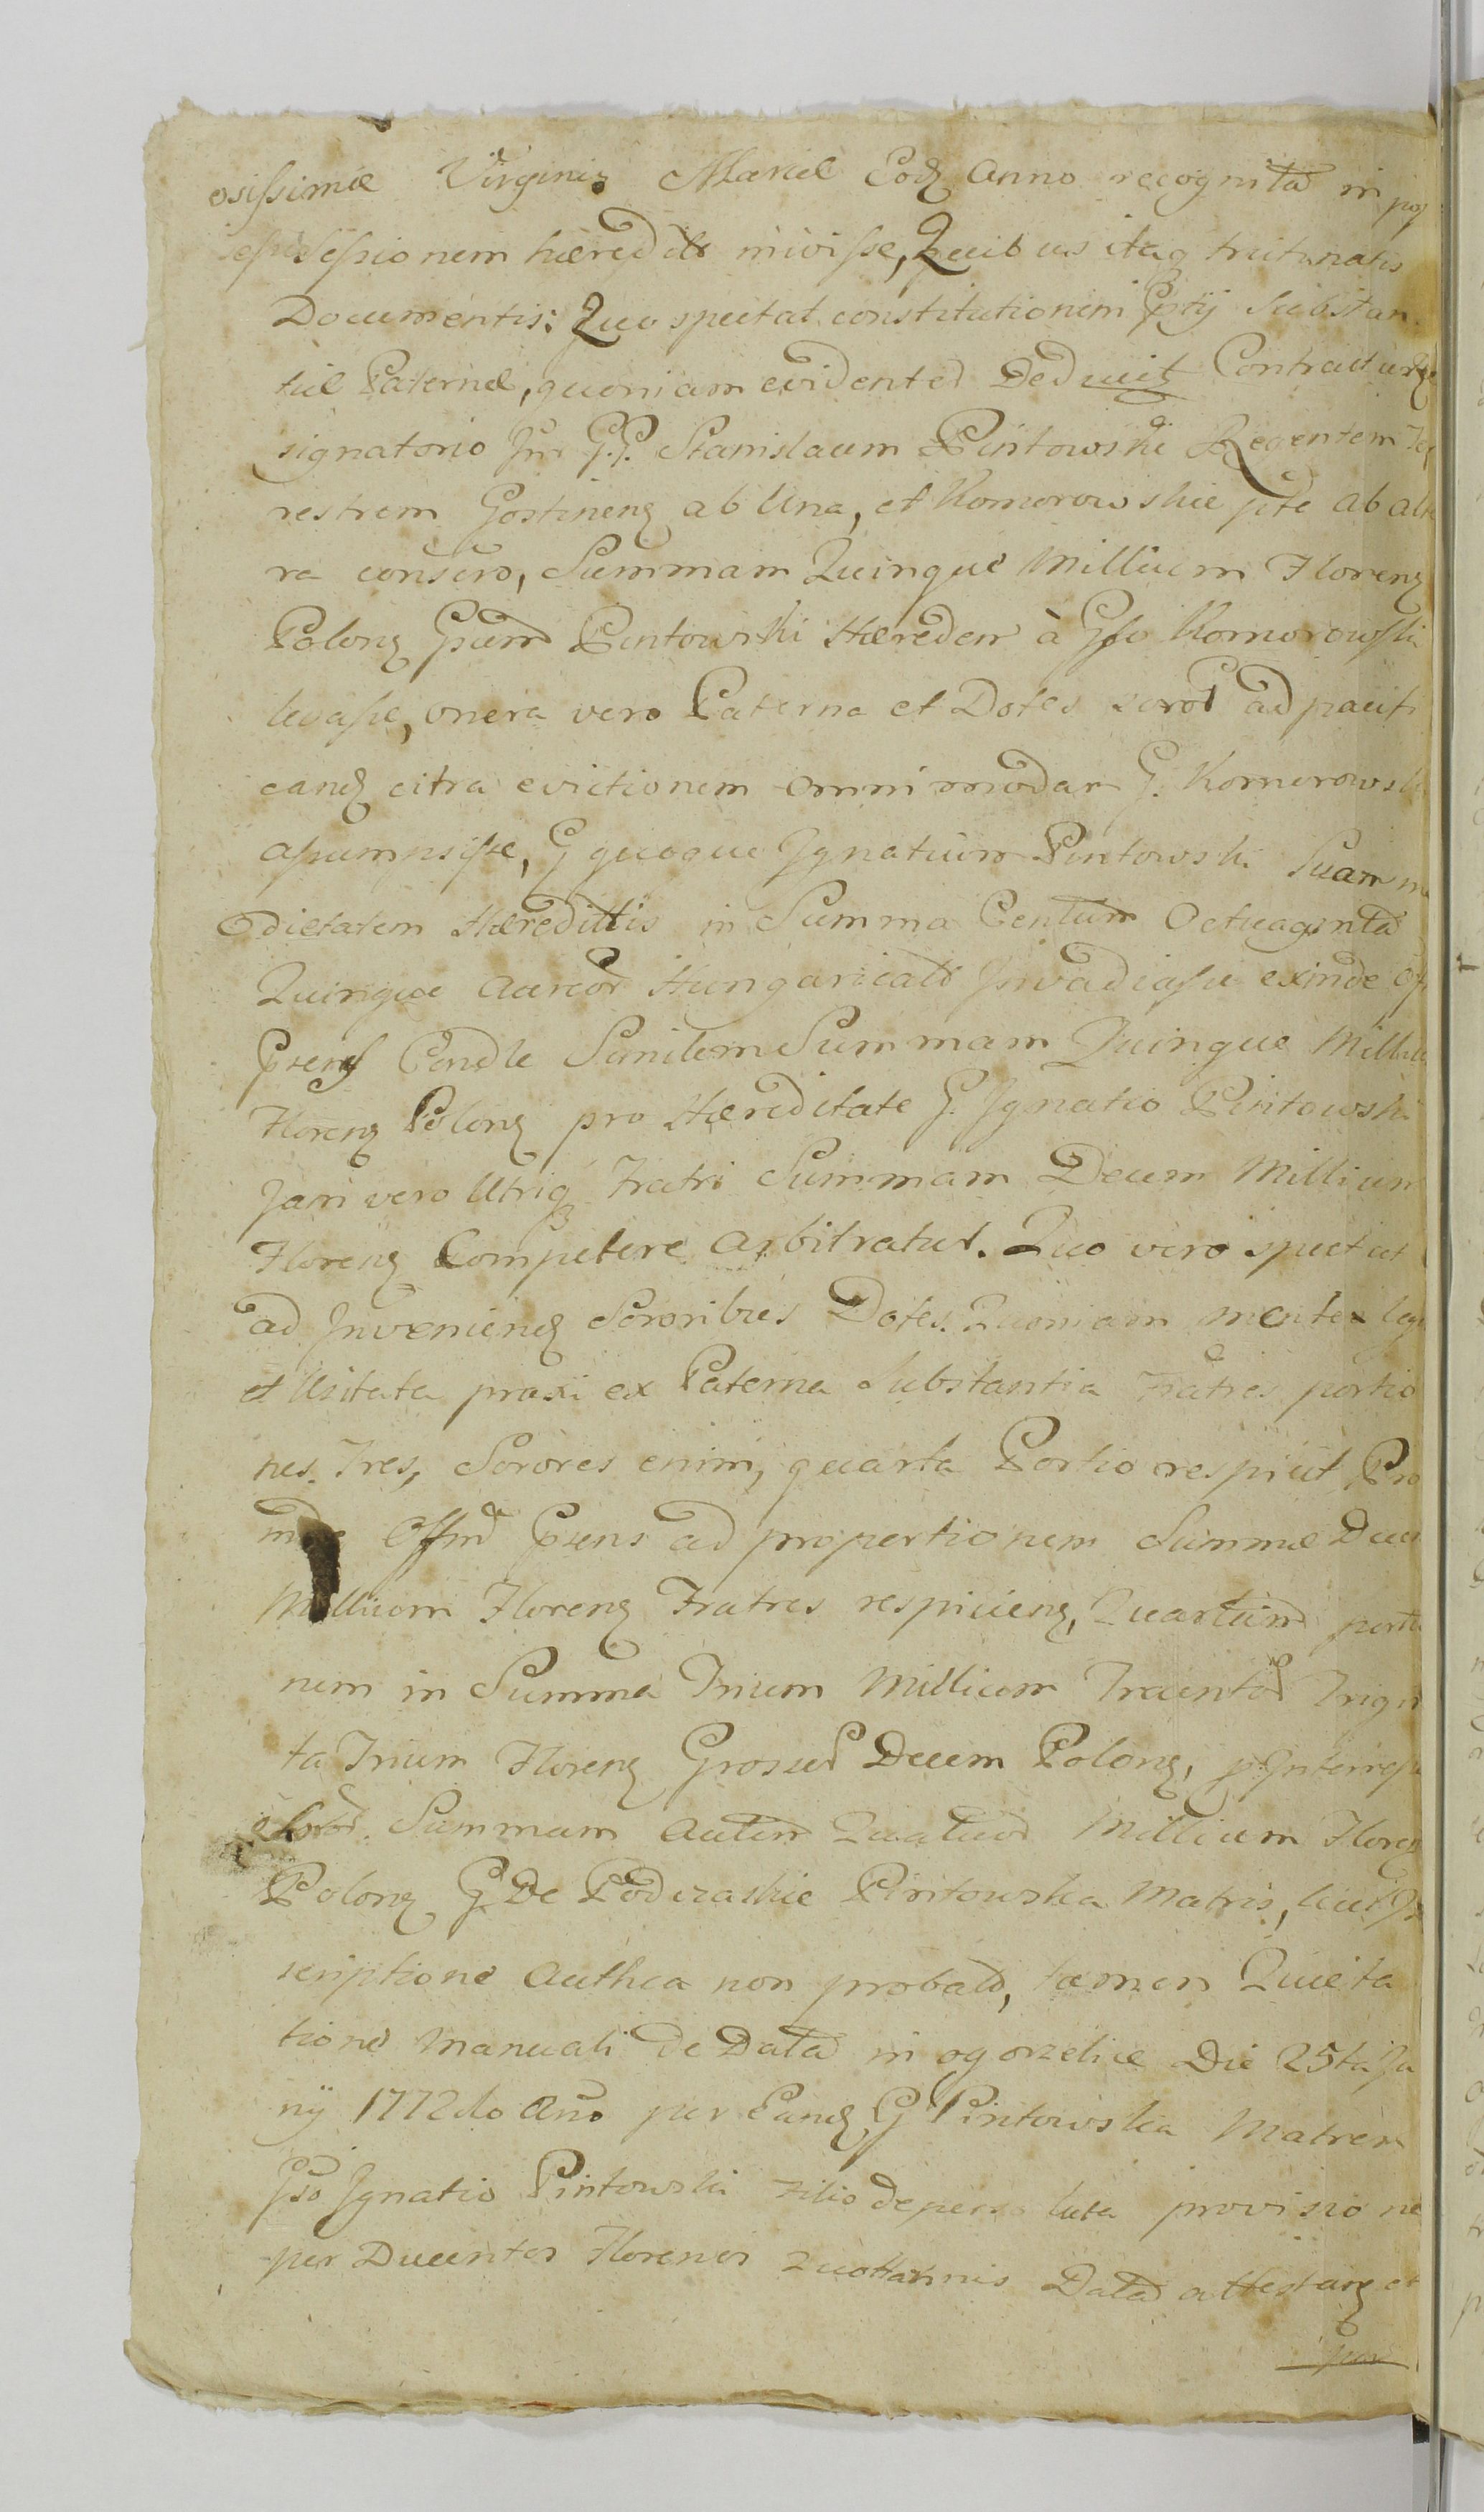 osissimæ Virginis Mariæ Eodz Anno recognita in pos
sessionem hæredit inivisse, Quibus itaq trutinatis
Documentis: Quo spectat constitutionem Substan
tiæ Paternæ, quoniam evidenter Deducit Contractus
signatorio Inr G.G. Stanislaum Pintowski Regentem Ter
restrem Gostinenz ab Una, et Komorowskie pte ab alte
ra conscro, Summam Quinque Millium Florenz
Polonz Gsum Pintowski Hæredem à Gso Komorowski
levasse, onera vero Paterna et Dotes soror ad pacifi
canz citra evictionem omnimodam G. Komorowski
assumsisse, G quoque Ignatium Pintowski Suam me
dietatem Hæredittis in Summa Centum Octuaginta
Quinque Aureor Hungarical Invadiasse exinde Off
Prens Condle Similem Summam Quinque Milliu
Florenz Polonz pro Hæreditate G. Ignatio Pintowski
Jam vero Utriq Fratri Summam Decem Millium
Florenz Competere arbitratur. Quo vero spectat
ad Inveniendz Sororibus Dotes. Quoniam mente leg
et Usitata praxi ex Paterna Substantia Fratres portio
nes Tres, Sorores enim, quarta Portio respicit Pro
inde Offm Prens ad proportionem Summæ Dece
Millium Florenz Fratres respicienz, Quartam portio
nem in Summa Trium Millium Trecentor Trigin
ta Trium Florenz Grossor Decem Polonz,
Summam Autem Quatuor Millium Florenz
Polonz G. De Podczaskie Pintowska Matris, licet In
scriptione Authca non probata, tamen Quieta
tione Manuali de Data in ogorzelice Die 25ta Ju
nij 1772do Ano per Eandz G Pintowska Matrem
Gso Ignatio Pintowski Filio de persoluta provisione
per Ducentos Florenos Quottannis Data attestanz et